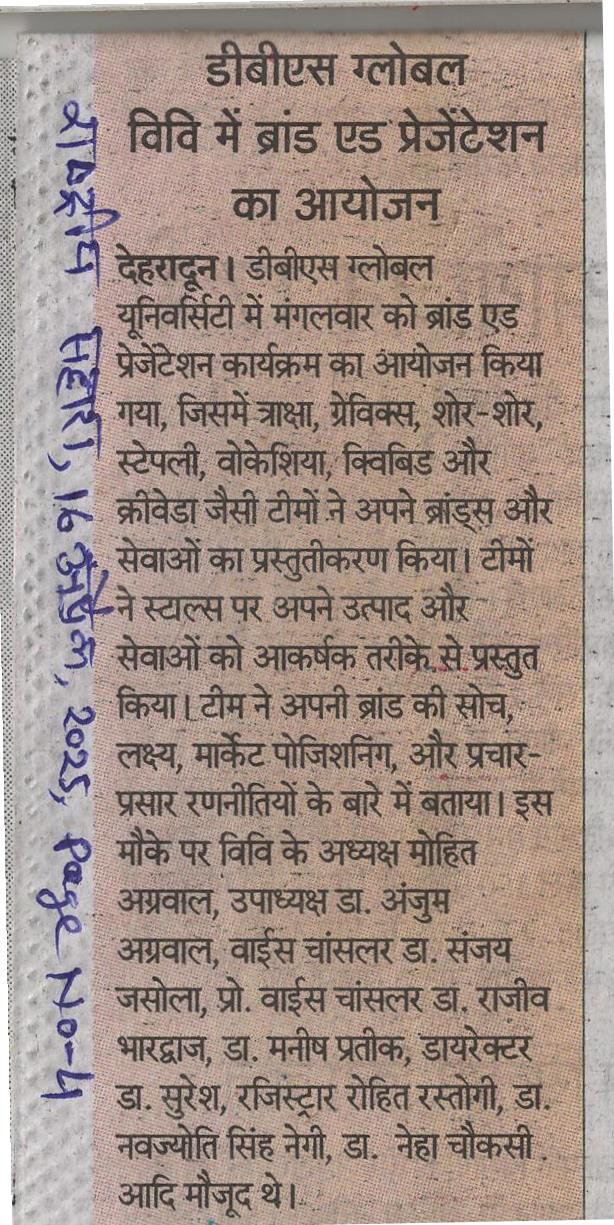 डीबीएस ग्लोबल
विवि में ब्रांड एड प्रेजेंटेशन
का आयोजन
देहरादून। डीबीएस ग्लोबल
यूनिवर्सिटी में मंगलवार को ब्रांड एड
प्रेजेंटेशन कार्यक्रम का आयोजन किया
गया, जिसमें त्राक्षा, ग्रेविक्स, शोर-शोर,
स्टेपली, वोकेशिया, क्विबिड और
क्रीवेडा जैसी टीमों ने अपने ब्रांड्स और
सेवाओं का प्रस्तुतीकरण किया। टीमों
ने स्टाल्स पर अपने उत्पाद और
सेवाओं को आकर्षक तरीके से प्रस्तुत
किया। टीम ने अपनी ब्रांड की सोच,
लक्ष्य, मार्केट पोजिशनिंग, और प्रचार-
प्रसार रणनीतियों के बारे में बताया। इस
मौके पर विवि के अध्यक्ष मोहित
अग्रवाल, उपाध्यक्ष डा. अंजुम
अग्रवाल, वाईस चांसलर डा. संजय
जसोला, प्रो. वाईस चांसलर डा. राजीव
भारद्वाज, डा. मनीष प्रतीक, डायरेक्टर
डा. सुरेश, रजिस्ट्रार रोहित रस्तोगी, डा.
नवज्योति सिंह नेगी, डा. नेहा चौकसी
आदि मौजूद थे।
राष्ट्रीय सहारा, 16 अप्रैल, 2025, Page No-4